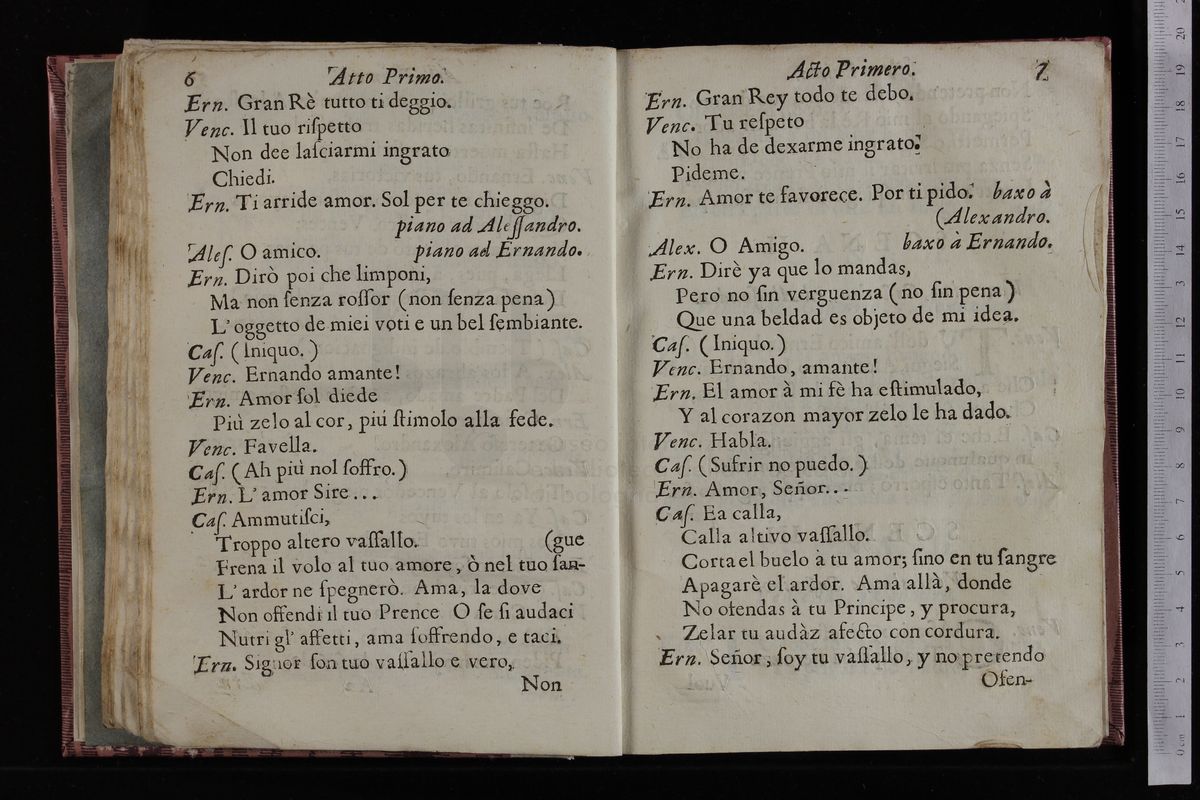 6 Atto Primo.
Ern. Gran Rè tutto ti deggio.
Venc. Il tuo riſpetto
Non dee laſciarmi ingrato
Chiedi.
Ern. Ti arride amor. Sol per te chieggo.
piano ad Aleſſandro.
Aleſ. O amico. piano ad Ernando.
Ern. Dirò poi che limponi,
Ma non ſenza roſſor (non ſenza pena)
L' oggetto de miei voti e un bel ſembiante.
Caſ. (Iniquo.)
Venc. Ernando amante!
Ern. Amor ſol diede
Più zelo al cor, più ſtimolo alla fede.
Venc. Favella.
Caſ. (Ah più nol ſoffro.)
Ern. L' amor Sire...
Caſ. Ammutiſci,
Troppo altero vaſſallo. (gue
Frena il volo al tuo amore, ò nel tuo ſan-
L' ardor ne ſpegnerò. Ama, la dove
Non offendi il tuo Prence O ſe ſi audaci
Nutri gl' affetti, ama ſoffrendo, e taci.
Ern. Signor ſon tuo vaſſallo e vero,
Non
Acto Primero. 7
Ern. Gran Rey todo te debo.
Venc. Tu reſpeto
No ha de dexarme ingrato:
Pideme.
Ern. Amor te favorece. Por ti pido. baxo à
(Alexandro.
Alex. O Amigo. baxo à Ernando.
Ern. Dirè ya que lo mandas,
Pero no ſin verguenza (no ſin pena)
Que una beldad es objeto de mi idea.
Caſ. (Iniquo.)
Venc. Ernando, amante!
Ern. El amor à mi fè ha eſtimulado,
Y al corazon mayor zelo le ha dado.
Venc. Habla.
Caſ. (Sufrir no puedo.)
Ern. Amor, Señor...
Caſ. Ea calla,
Calla altivo vaſſallo.
Corta el buelo à tu amor; ſino en tu ſangre
Apagarè el ardor. Ama allà, donde
No ofendas à tu Principe, y procura,
Zelar tu audàz afecto con cordura.
Ern. Señor, ſoy tu vaſſallo, y no pretendo
Ofen-